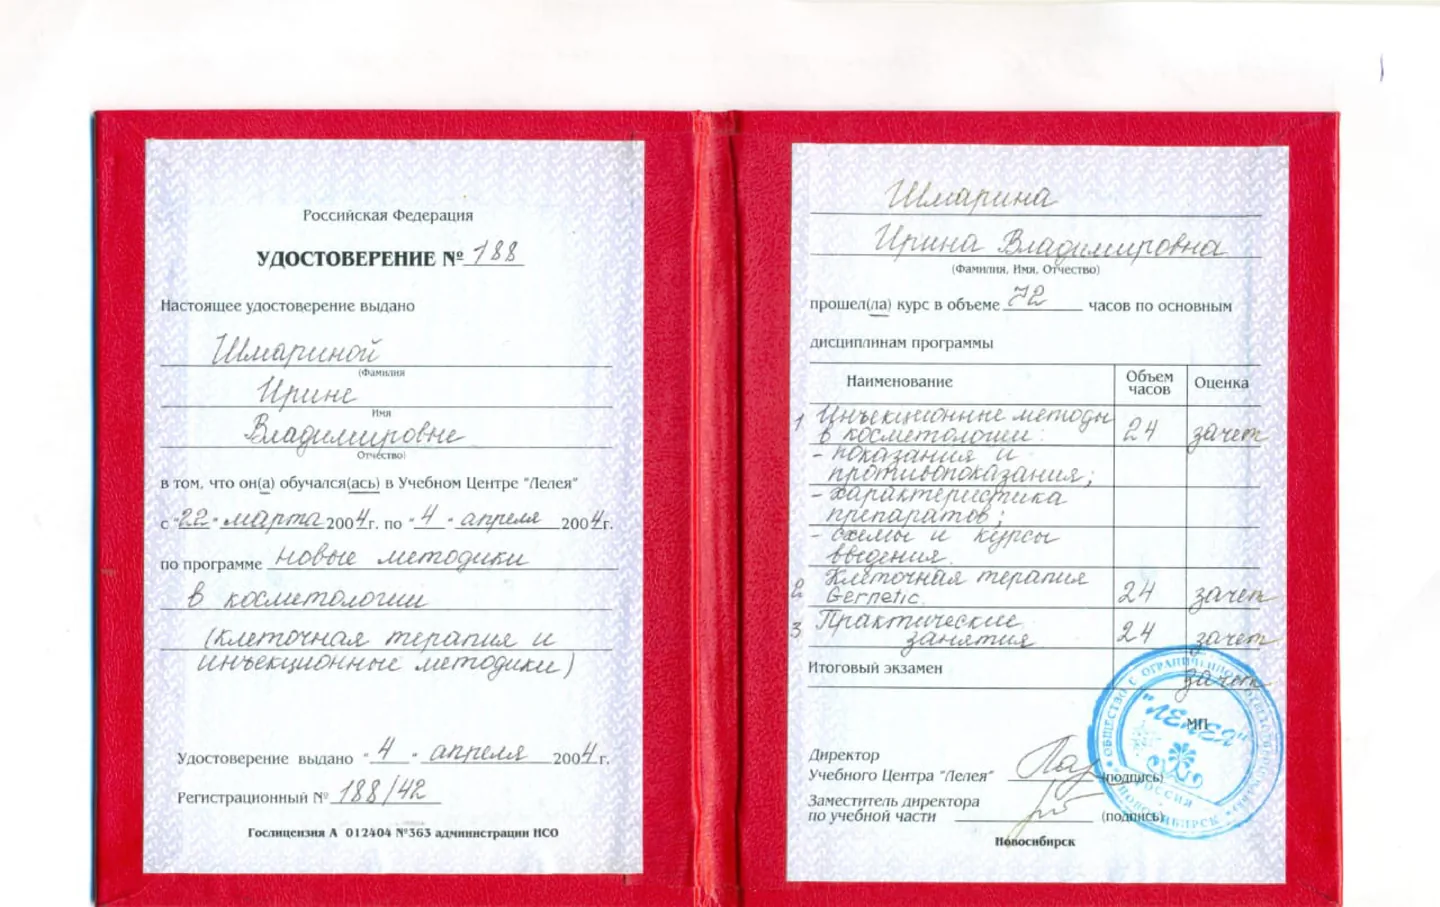 Российская Федерация
УДОСТОВЕРЕНИЕ № 188
Настоящее удостоверение выдано
Шмариной
(Фамилия
Ирине
Имя
Владимировне
Отчество)
в том, что он(а) обучался(ась) в Учебном Центре "Лелея"
с "22" марта 2004г. по "4" апреля 2004г.
по программе новые методики
в косметологии
(клеточная терапия и
инъекционные методики)
Удостоверение выдано "4" апреля 2004г.
Регистрационный № 188/42
Гослицензия А 012404 №363 администрации НСО
Шмарина
Ирина Владимировна
(Фамилия, Имя, Отчество)
прошел(ла) курс в объеме 72 часов по основным
дисциплинам программы
Наименование Объем часов Оценка
1 Инъекционные методы
в косметологии: 24 зачет
- показания и
противопоказания;
- характеристика
препаратов;
- схемы и курсы
введения.
2 Клеточная терапия
Gernetic. 24 зачет
3 Практические
занятия 24 зачет
Итоговый экзамен зачет
МП
Директор
Учебного Центра "Лелея" (подпись)
Заместитель директора
по учебной части (подпись)
Новосибирск
ОБЩЕСТВО С ОГРАНИЧЕННОЙ ОТВЕТСТВЕННОСТЬЮ
"ЛЕЛЕЯ"
РОССИЯ
НОВОСИБИРСК